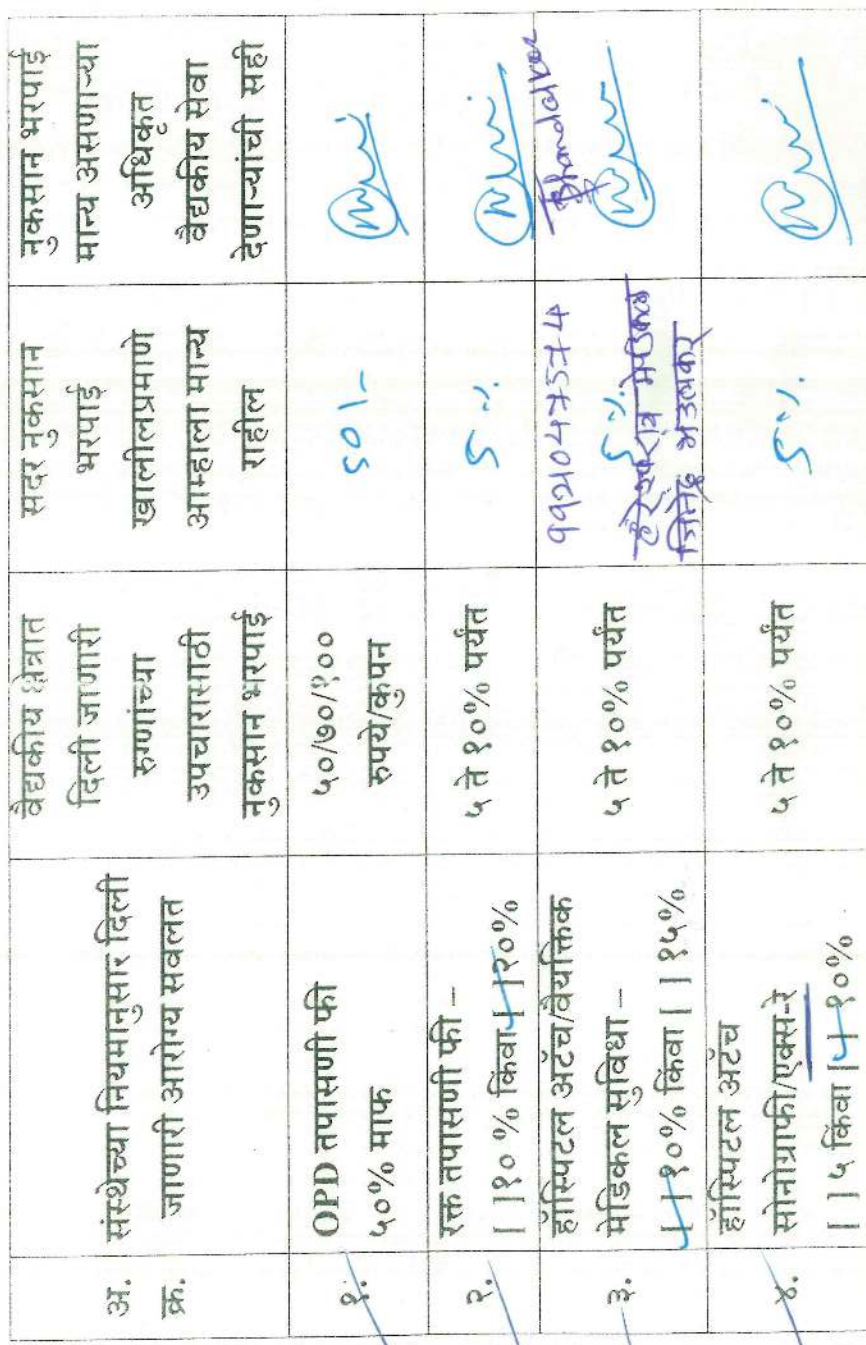 अ. क्र.
संस्थेच्या नियमानुसार दिली
जाणारी आरोग्य सवलत
वैद्यकीय क्षेत्रात
दिली जाणारी
रुग्णांच्या
उपचारासाठी
नुकसान भरपाई
सदर नुकसान
भरपाई
खालीलप्रमाणे
आम्हाला मान्य
राहील
नुकसान भरपाई
मान्य असणाऱ्या
अधिकृत
वैद्यकीय सेवा
देणाऱ्यांची सही
१.
OPD तपासणी फी
५०% माफ
५०/७०/१००
रुपये/कुपन
50/-
२.
रक्त तपासणी फी –
[ ]१० % किंवा [ ]२०%
५ ते १०% पर्यंत
5%
३.
हॉस्पिटल अटॅच/वैयक्तिक
मेडिकल सुविधा –
[ ] १०% किंवा [ ] १५%
५ ते १०% पर्यंत
5%
४.
हॉस्पिटल अटॅच
सोनोग्राफी/एक्स-रे
[ ] ५ किंवा [ ] १०%
५ ते १०% पर्यंत
5%